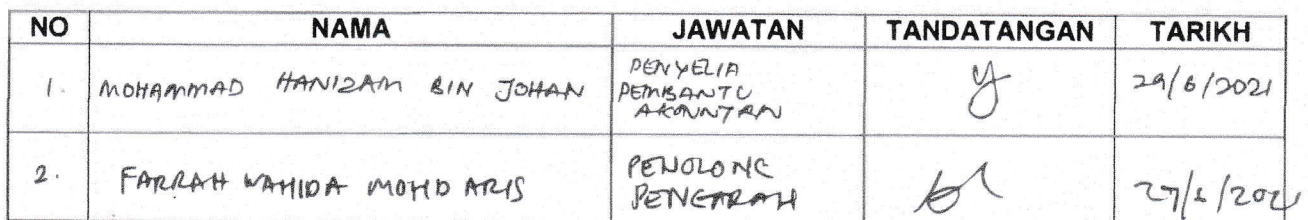 NO NAMA JAWATAN TANDATANGAN TARIKH
1. MOHAMMAD HANIZAM BIN JOHAN PENYELIA
PEMBANTU
AKAUNTAN
29/6/2021
2. FARRAH WAHIDA MOHD ARIS PENOLONG
PENGARAH